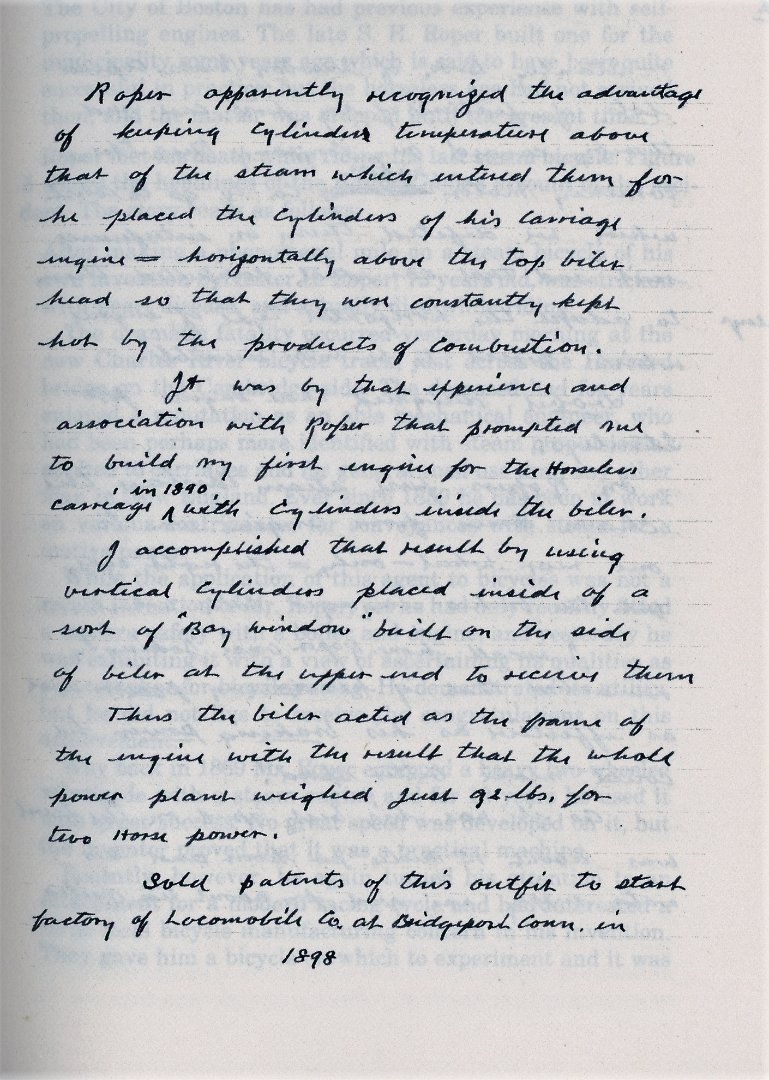 Roper apparently recognized the advantage
of keeping Cylinders temperature above
that of the steam which entered them for
he placed the Cylinders of his Carriage
engine = horizontally above the top biler
head so that they were constantly kept
hot by the products of Combustion.
It was by that experience and
association with Roper that prompted me
to build my first engine for the Horseless
carriage in 1890 with Cylinders inside the biler.
I accomplished that result by using
virtical Cylinders placed inside of a
sort of "Bay window" built on the side
of biler at the upper end to receive them
Thus the biler acted as the frame of
the engine with the result that the whole
power plant weighed just 92 lbs. for
two Horse power.
Sold patents of this outfit to start
factory of Locomobile Co. at Bridgeport Conn. in
1898